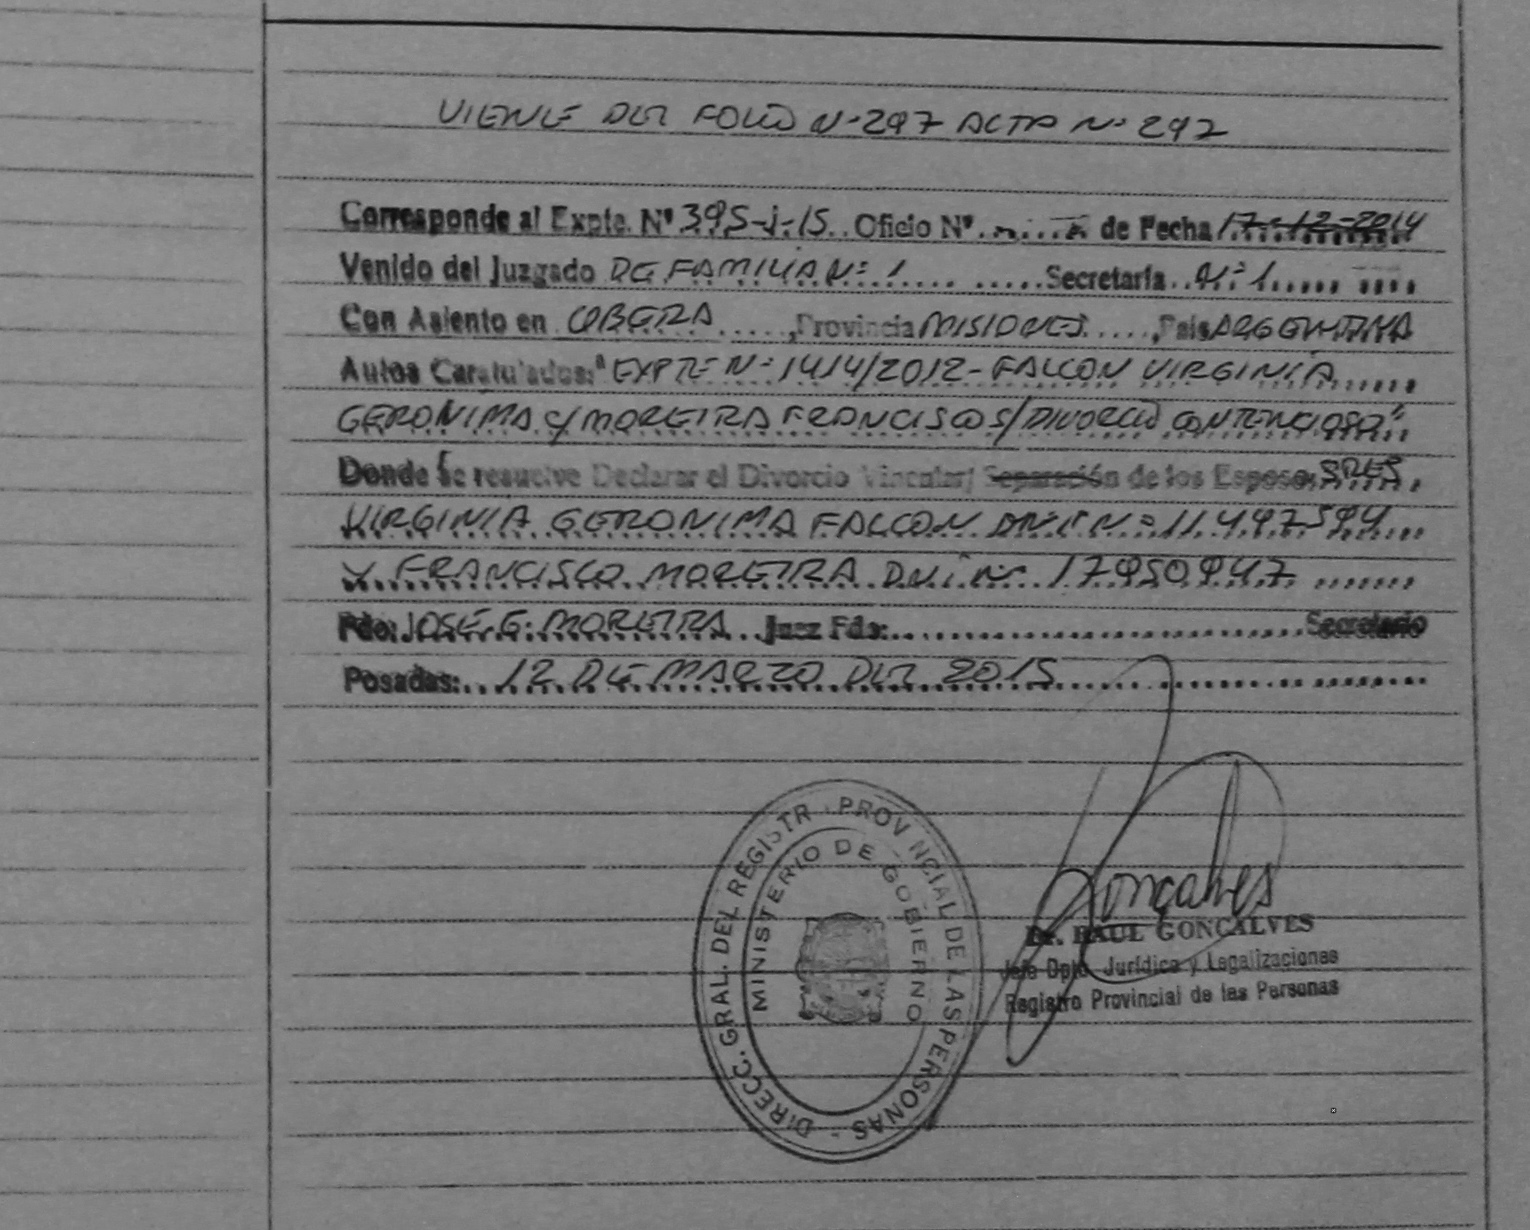 VIENE DEL FOLIO Nº 297 ACTA Nº 292
Corresponde al Expte. Nº 395-J-15. Oficio Nº ........ de Fecha 17-12-2014
Venido del Juzgado DE FAMILIA Nº 1 ........ Secretaría Nº 1 ........
Con Asiento en OBERA ....., Provincia MISIONES ....., País ARGENTINA
Autos Caratulados: "EXPTE Nº 1414/2012 - FALCON VIRGINIA
GERONIMA C/ MOREIRA FRANCISCO S/ DIVORCIO CONTENCIOSO"
Donde se resuelve Declarar el Divorcio Vincular/ Separación de los Esposos SRES
VIRGINIA GERONIMA FALCON DNI Nº 11.497594
Y FRANCISCO MOREIRA D.N.I Nº 17950947
Fdo: JOSÉ G. MOREIRA Juez Fdo: ........ Secretario
Posadas: 12 DE MARZO DEL 2015
DIRECC. GRAL. DEL REGISTR PROVINCIAL DE LAS PERSONAS -
MINISTERIO DE GOBIERNO
Gonçalves
Dr. RAUL GONCALVES
Jefe Dpto. Jurídico y Legalizaciones
Registro Provincial de las Personas